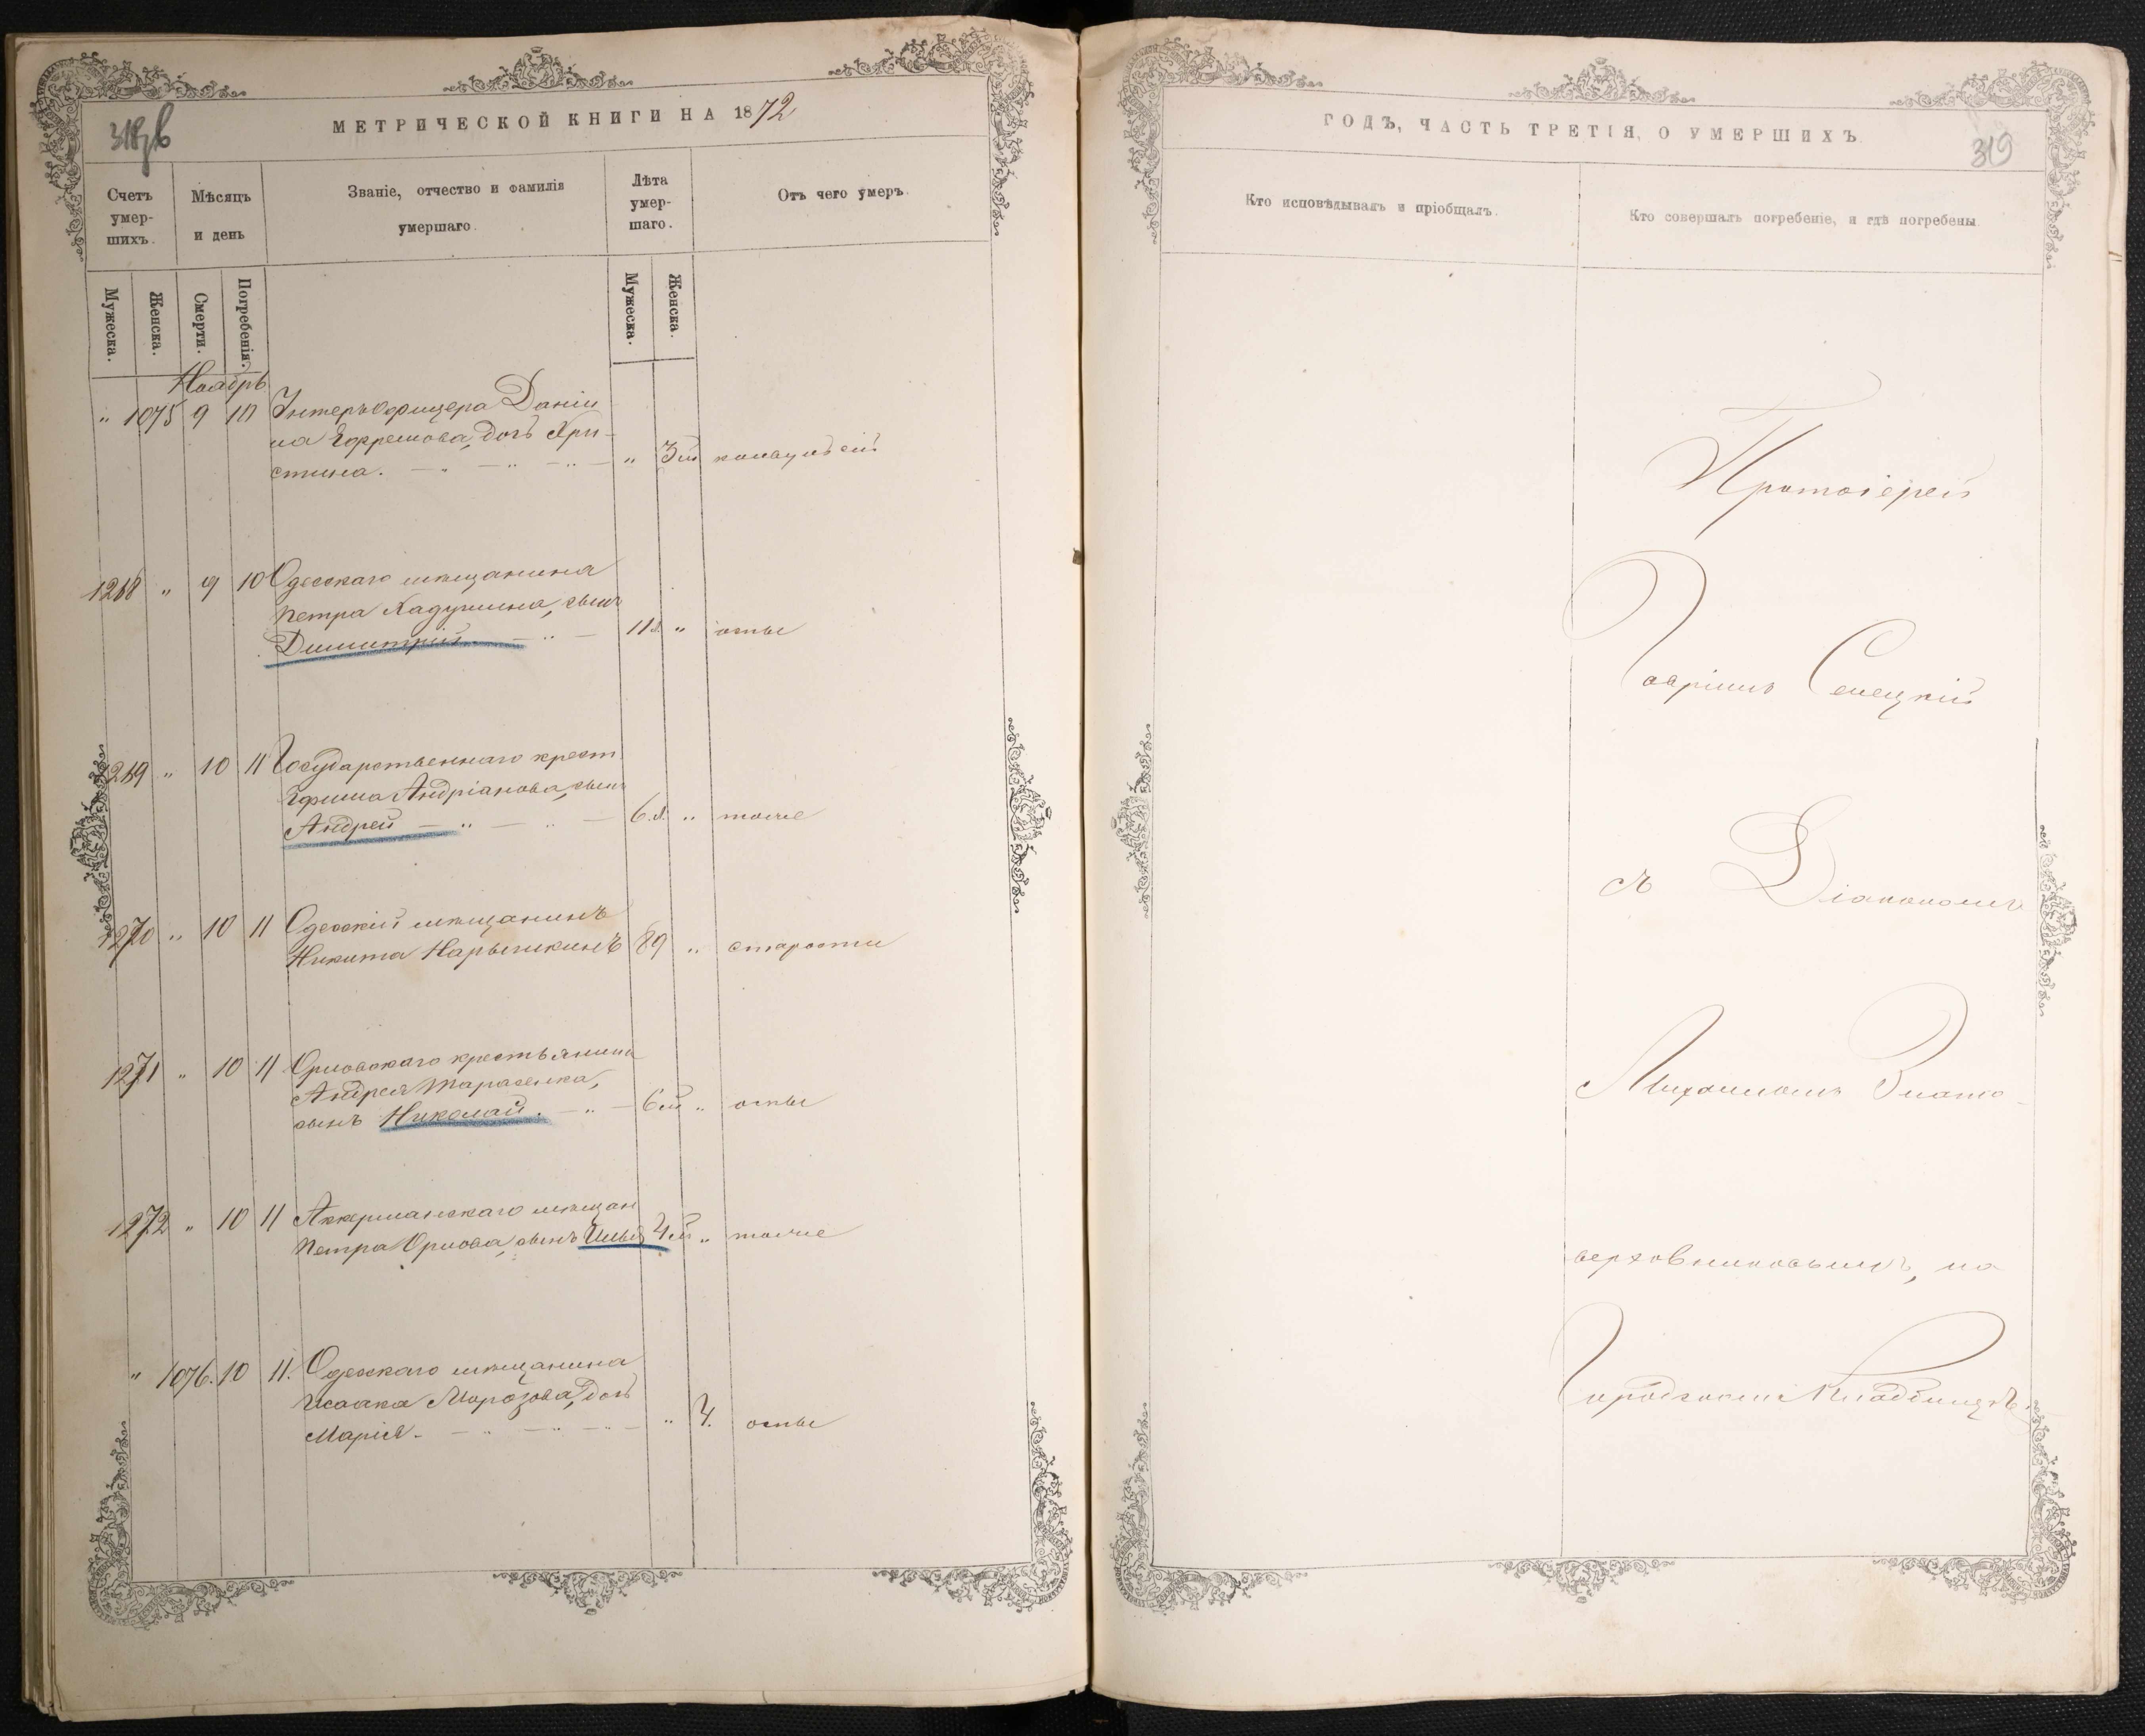 318зв
МЕТРИЧЕСКОЙ КНИГИ НА 1872
Счетъ умер-шихъ.
Мѣсяцъ и день
Званіе, отчество и фамилія умершаго.
Лѣта умер-шаго.
Отъ чего умеръ.
Мужеска.
Женска.
Смерти.
Погребенія.
Мужеска.
Женска.
Ноябрь
" 1075 9 10 Унтеръ Офицера Даніи
ла Ефремова, дочь Хри-
стина. " 3 м
1268 " 9 10 Одесскаго мѣщанина
Петра Кадушина, сынъ
Димитрій 11 л. " оспы
1269 " 10 11 Государственнаго крест.
Ефима Андріанова, сынъ
Андрей 6. л. " тоже
1270 " 10 11 Одесскій мѣщанинъ
Никита Нарышкинъ 89 " старости
1271 " 10 11 Орловскаго крестьянина
Андрея Тарасенка,
сынъ Николай. 6 м " оспы
1272 " 10 11 Аккерманскаго мѣщан
Петра Орлова, сынъ Илья 4 м " тоже
" 1076. 10 11. Одесскаго мѣщанина
Исаака Морозова, дочь
Марія. " 4. оспы
ГОДЪ, ЧАСТЬ ТРЕТІЯ, О УМЕРШИХЪ
319
Кто исповѣдывалъ и пріобщалъ.
Кто совершалъ погребеніе, и гдѣ погребены
Протоіерей
Гавріилъ Селецкій
съ Діакономъ
Михаиломъ Злато-
верховниковымъ, на
Городскомъ Кладбищѣ.